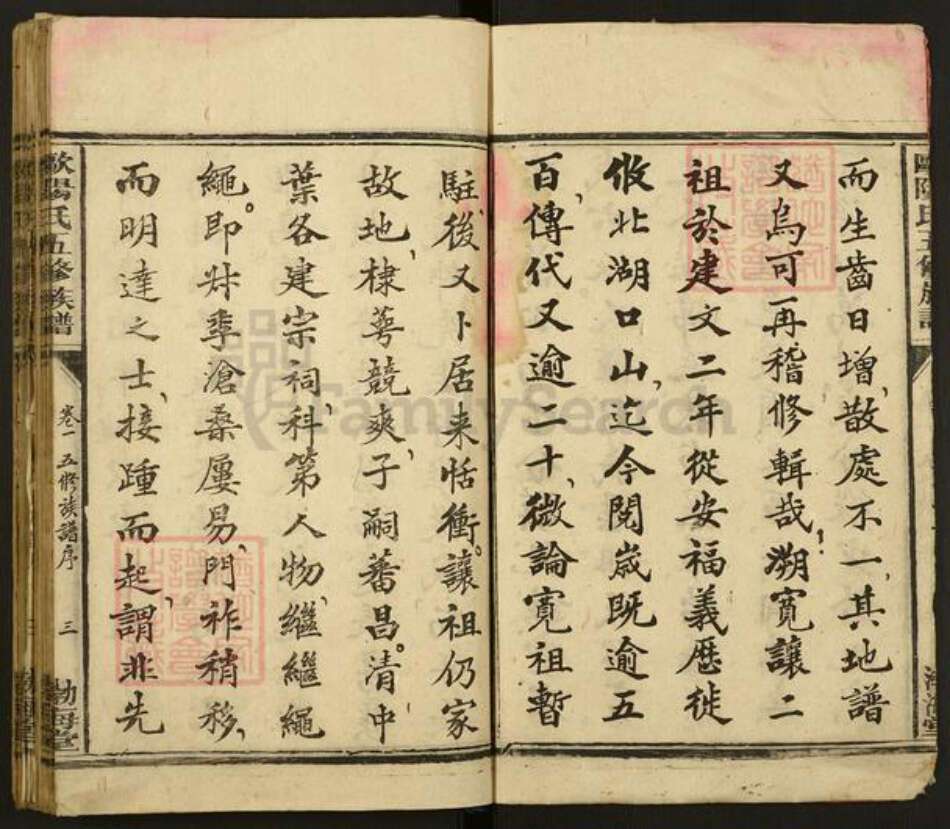 而生齒日增、散處不一、其地譜
又烏可再稽修輯哉、溯寬讓二
祖於建文二年從安福義歷徙
攸北湖口山、迄今閱歲既逾五
百、傳代又逾二十、微論寬祖暫
駐、後又卜居来恬衝。讓祖仍家
故地、棣萼競爽、子嗣蕃昌。清中
葉各建宗祠、科第人物、繼繼繩
繩。即妣季滄桑屢易、門祚稍移、
而明達之士、接踵而起、謂非先
歐陽氏五修族譜
卷一 五修族譜序 三
渤海堂
FamilySearch